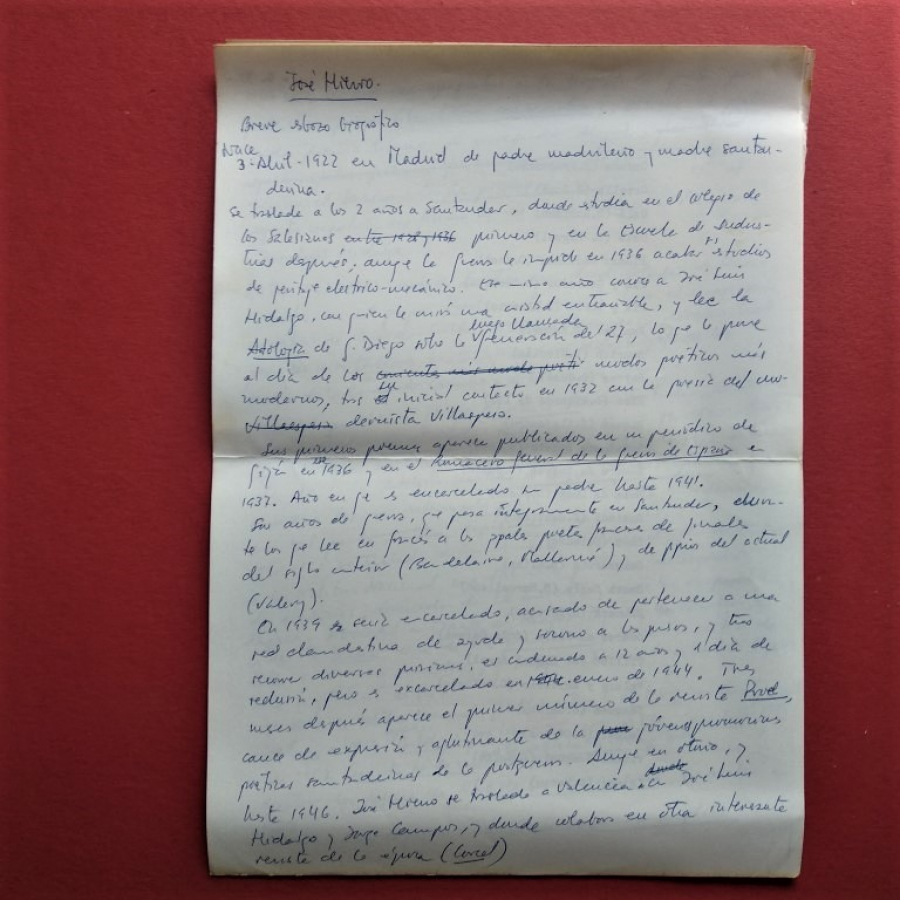 José Hierro.
Breve esbozo biográfico
Nace
3-Abril-1922 en Madrid de padre madrileño y madre santan-
derina.
Se traslada a los 2 años a Santander, donde estudia en el colegio de
los Salesianos entre 1928 y 1936 primero y en la Escuela de Indus-
trias después, aunqe la guerra le impide en 1936 acabar sus estudios
de peritaje eléctrico-mecánico. Ese mismo año conoce a José Luis
Hidalgo, con quien le unirá una amistad entrañable, y lee la
luego llamada
Antología de G. Diego sobre la Generación del 27, lo qe le pone
al día de los modos poéticos más
modernos, tras su inicial contacto en 1932 con la poesía del mo-
Villaespesa dernista Villaespesa.
Sus primeros poemas aparecen publicados en un periódico de
Gijón en 1936 y en el Romancero general de la guerra de España en
1937. Año en qe es encarcelado su padre hasta 1941.
Son años de guerra, qe pasa íntegramente en Santander, duran-
te los qe lee en francés a los ppales poetas franceses de finales
del siglo anterior (Baudelaire, Mallarmé) y de ppios del actual
(Valery).
En 1939 sería encarcelado, acusado de pertenecer a una
red clandestina de ayuda y socorro a los presos, y tras
recorrer diversas prisiones, es condenado a 12 años y 1 día de
reclusión, pero es excarcelado en enero de 1944. Tres
meses después aparece el primer número de la revista Proel,
cauce de expresión y aglutinante de la jóvenes promociones
poéticas santanderinas de la postguerra. Aunqe en otoño, y
hasta 1946, José Hierro se traslada a Valencia José Luis
Hidalgo y Jorge Campos, y donde colabora en otra interesante
revista de la época (Corcel)